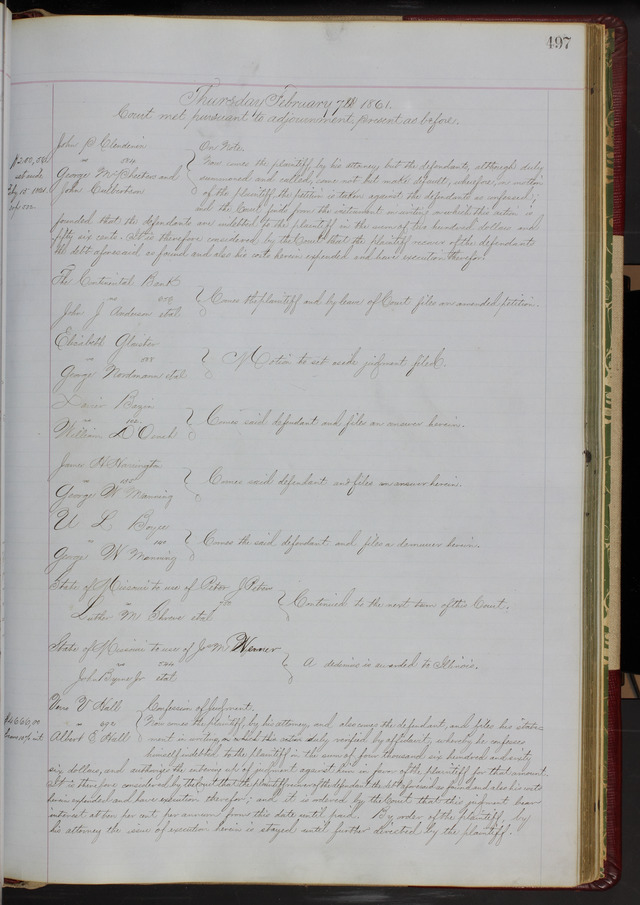 497
Thursday February 7th 1861.
Court met pursuant to adjournment, present as before.
John C Clendenin
vs
George M and
John Culbertson
On Note
Now comes the plaintiff by his attorney but the defendants, although duly
summoned and called, come not but make default, wherefore, on motion
of the plaintiff the petition is taken against the defendants as confessed;
and the Court finds from the instrument in writing on which this action is
founded that the defendants are indebted to the plaintiff in the sum of two hundred dollars and
fifty six cents. It is therefore considered by the Court that the plaintiff recover of the defendants
the debt aforesaid, so found and also his costs herein expended and have execution therefor.
The Continental Bank
vs
John J Anderson et al
Comes the plaintiff and by leave of Court files an amended petition.
Elizabeth Glasber
vs
George Nordmann et al
Motion to set aside judgment filed.
Bazin
vs
William D
Comes said defendant and files an answer herein.
James H Harrington
vs
George W Manning
Comes said defendant and files an answer herein.
U L Boyce
vs
George W Manning
Comes the said defendant and files a demurrer herein.
State of Missouri to use of Peter J Peters
vs
Luther M et al
Continued to the next term of this Court.
State of Missouri to use of Jno M Werner
vs
John Byrne Jr et al
A dedimus is awarded to Illinois.
V Hall
vs 892
Albert E Hall
$4666,00
Confession of Judgment.
Now comes the plaintiff, by his attorney, and also comes the defendant, and files his state-
ment in writing, duly verified by affidavit, whereby he confesses
himself indebted to the plaintiff in the sum of four thousand six hundred and sixty
six dollars, and authorizes the entering up of judgment against him in favor of the plaintiff for that amount.
It is therefore considered by the Court that the plaintiff recover of the defendant the debt aforesaid so found and also his costs
herein expended and have execution therefor; and it is ordered by the Court that this judgment bear
interest at ten per cent per annum from this date until paid. By order of the plaintiff, by
his attorney the issue of execution herein is stayed until further directed by the plaintiff.